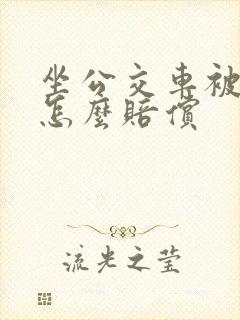 坐公交車被
怎麼賠償
流光之莹